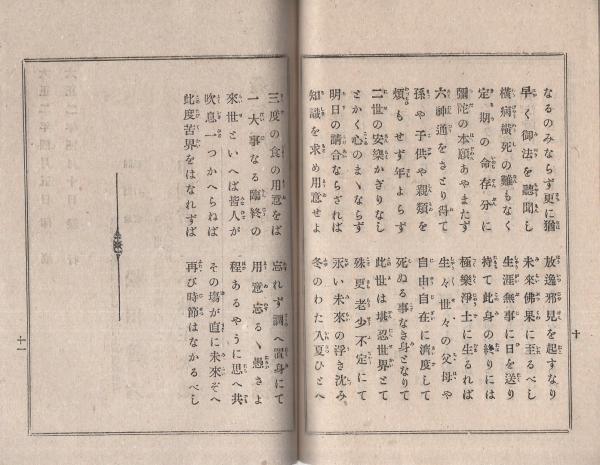 なるのみならず更に猶　放逸邪見を起すなり
早く御法を聽聞し　未來佛果に至るべし
橫病橫死の難もなく　生涯無事に日を送り
定期の命存分に　持て此身の終りには
彌陀の本願あやまたず　極樂淨土に生るれば
六神通をさとり得て　生々世々の父母や
孫や子供や親類を　自由自在に濟度して
煩もせず年よらず　死ぬる事なき身となりて
二世の安樂かぎりなし　此世は堪忍世界とて
とかく心のまゝならず　殊更老少不定にて
明日の請合ならざれば　永い未來の浮き沈み
知識を求め用意せよ　冬のわた入夏ひとへ
十
三度の食の用意をば　忘れず調へ置身にて
一大事なる臨終の　用意忘るゝ愚さよ
來世といへば皆人が　程あるやうに思へ共
吹息一つかへらねば　その塲が直に未來ぞへ
此度苦界をはなれずば　再び時節はなかるべし
十一